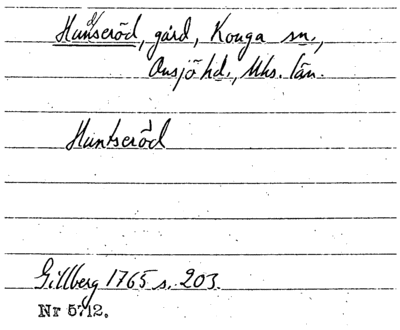 Hunseröd, gård, Konga sn.,
Onsjö hd., Mhs. län.
Huntseröd
Gillberg 1765 s. 203.
Nr 5712.